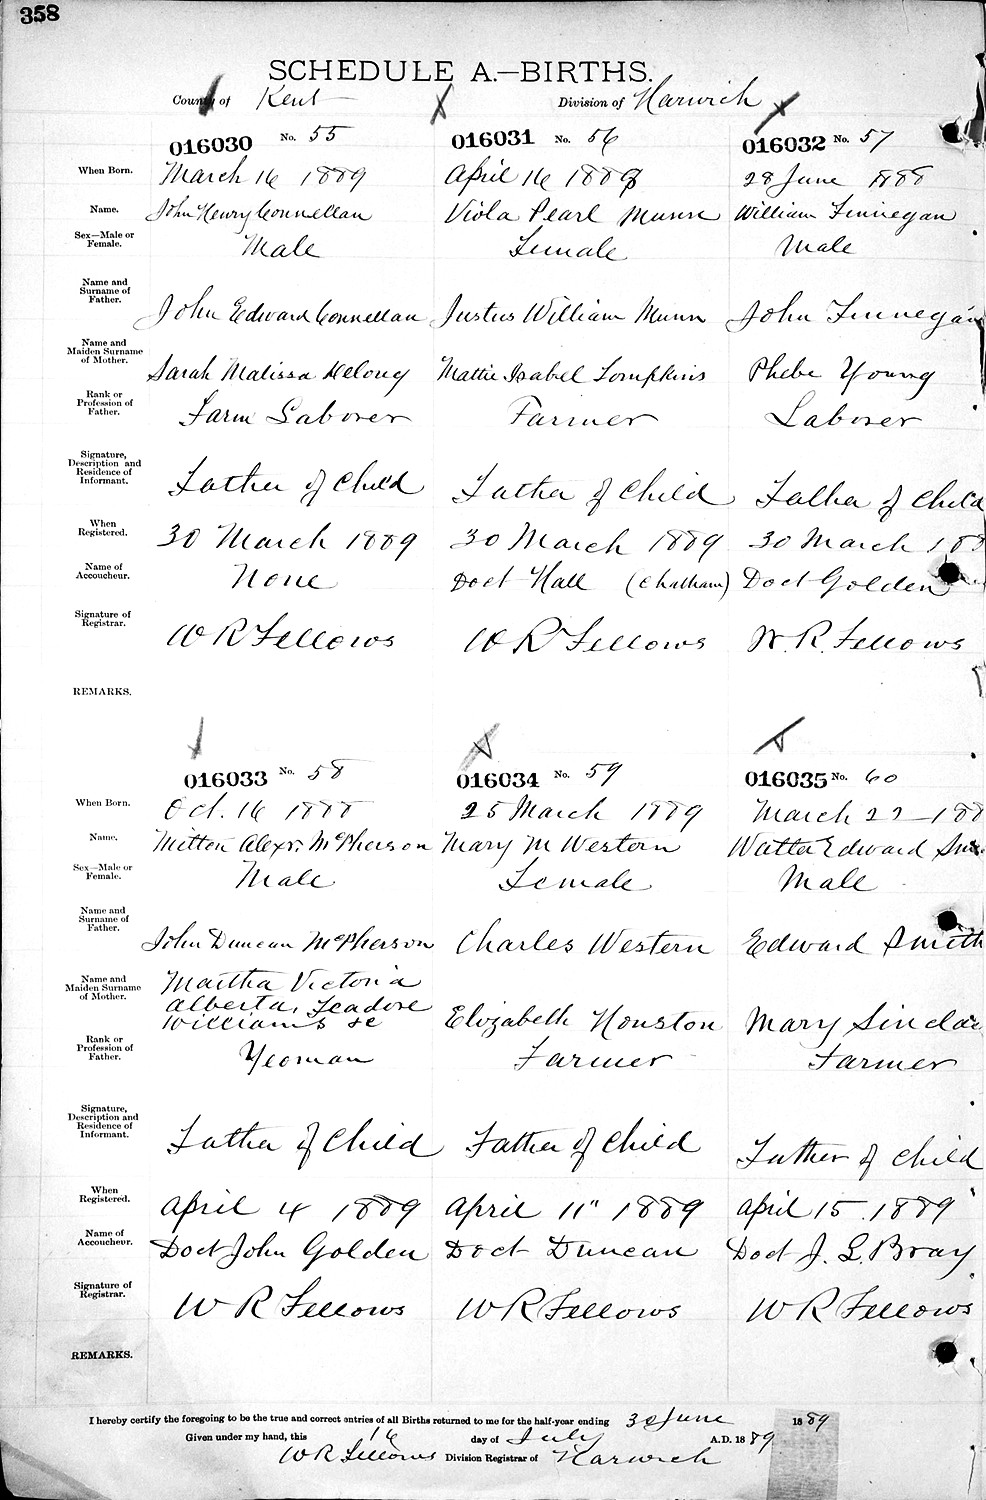 358
SCHEDULE A.—BIRTHS.
County of Kent Division of Harwich
016030 No. 55 016031 No. 56 016032 No. 57
When Born. March 16 1889 April 16 1888 28 June 1888
Name. John Henry Connellan Viola Pearl Munn William Finnegan
Sex—Male or
Female. Male Female Male
Name and
Surname of
Father. John Edward Connellan Justus William Munn John Finnegan
Name and
Maiden Surname
of Mother. Sarah Malissa Delong Mattie Isabel Tompkins Phebe Young
Rank or
Profession of
Father. Farm Laborer Farmer Laborer
Signature,
Description and
Residence of
Informant. Father of Child Father of Child Father of Child
When
Registered. 30 March 1889 30 March 1889 30 March 188
Name of
Accoucheur. None Doct Hall (Chatham) Doct Golden
Signature of
Registrar. W R Fellows W R Fellows W. R. Fellows
REMARKS.
016033 No. 58 016034 No. 59 016035 No. 60
When Born. Oct. 16 1888 25 March 1889 March 22 188
Name. Milton Alexr. McPherson Mary M Western Walter Edward
Sex—Male or
Female. Male Female Male
Name and
Surname of
Father. John Duncan McPherson Charles Western Edward Smith
Name and
Maiden Surname
of Mother. Martha Victoria
Alberta, Leadore
Williams Elizabeth Houston Mary Sinclair
Rank or
Profession of
Father. Yeoman Farmer Farmer
Signature,
Description and
Residence of
Informant. Father of Child Father of Child Father of Child
When
Registered. April 4 1889 April 11" 1889 April 15 1889
Name of
Accoucheur. Doct John Golden Doct Duncan Doct J. L. Bray
Signature of
Registrar. W R Fellows W R Fellows W R Fellows
REMARKS.
I hereby certify the foregoing to be the true and correct entries of all Births returned to me for the half-year ending 30 June 1889
Given under my hand, this 16 day of July A.D. 1889
W R Fellows Division Registrar of Harwich